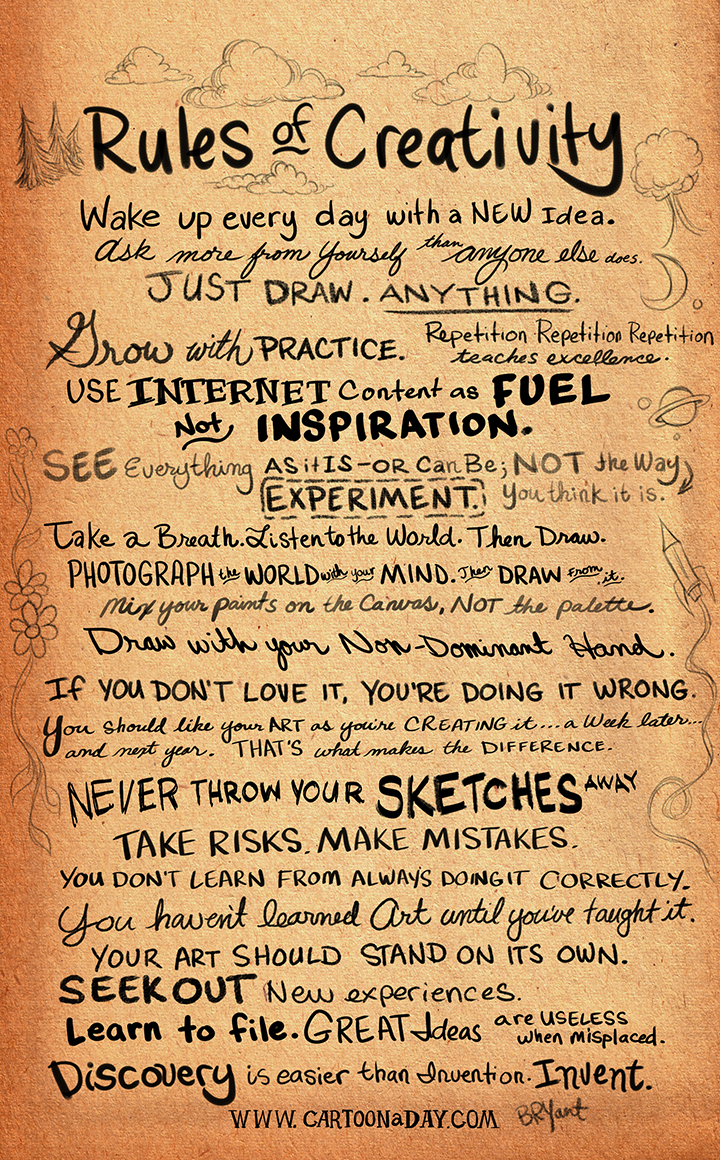 Rules of Creativity
Wake up every day with a NEW Idea.
Ask more from yourself than anyone else does.
JUST DRAW. ANYTHING.
Grow with PRACTICE. Repetition Repetition Repetition
teaches excellence.
USE INTERNET Content as FUEL
Not INSPIRATION.
SEE Everything AS it IS-OR Can Be; NOT the Way
EXPERIMENT. You think it is.
Take a Breath. Listen to the World. Then Draw.
PHOTOGRAPH the WORLD with your MIND. Then DRAW From it.
Mix your paints on the Canvas, NOT the palette.
Draw with your Non-Dominant Hand.
If YOU DON'T LOVE IT, YOU'RE DOING IT WRONG.
You should like your ART as you're CREATING it... a Week later...
and next year. THAT'S what makes the DIFFERENCE.
NEVER THROW YOUR SKETCHES AWAY
TAKE RISKS. MAKE MISTAKES.
YOU DON'T LEARN FROM ALWAYS DOING IT CORRECTLY.
You haven't learned Art until you've taught it.
YOUR ART SHOULD STAND ON ITS OWN.
SEEK OUT New experiences.
Learn to file. GREAT Ideas are USELESS
when misplaced.
Discovery is easier than Invention. Invent.
WWW.CARTOONaDAY.COM BRYant